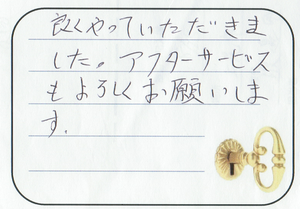 良くやっていただきま
した。アフターサービス
もよろしくお願いしま
す.